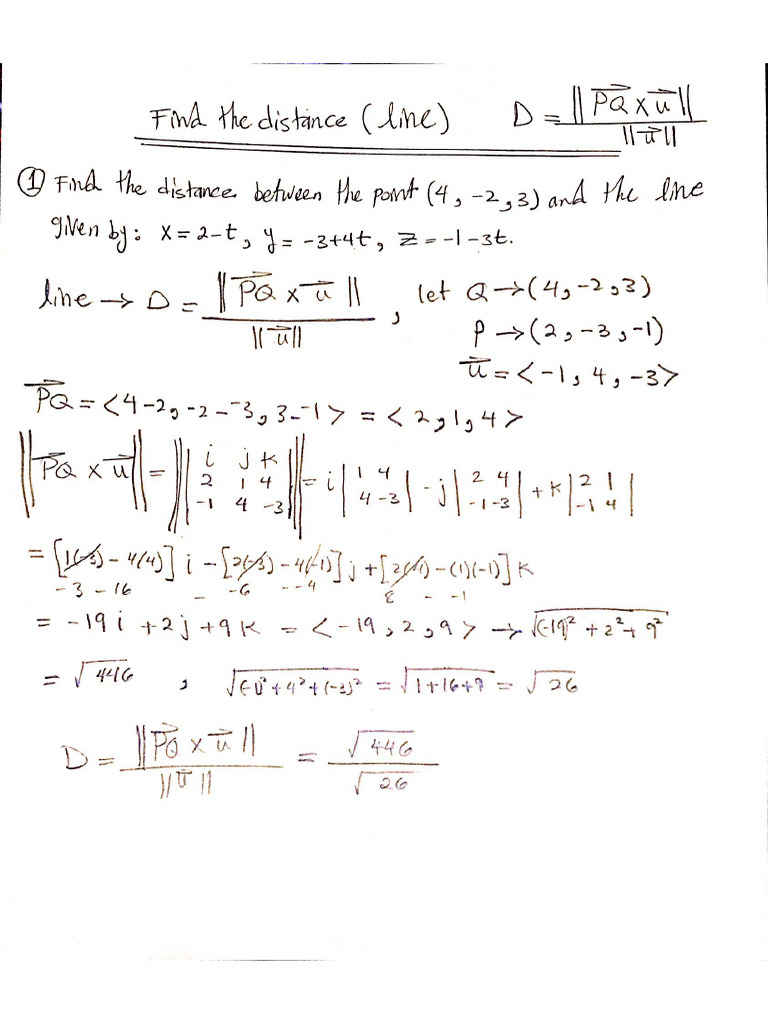 Find the distance (line) D = ||PQ⃗ x u⃗|| / ||u⃗||
① Find the distance between the point (4, -2, 3) and the line
given by: x = 2-t, y = -3+4t, z = -1-3t.
line → D = ||PQ⃗ x u⃗|| / ||u⃗|| , let Q → (4, -2, 3)
P → (2, -3, -1)
u⃗ = <-1, 4, -3>
PQ⃗ = <4-2, -2--3, 3--1> = <2, 1, 4>
||PQ⃗ x u⃗|| = || i j k ; 2 1 4 ; -1 4 -3 || = i |1 4 ; 4 -3| - j |2 4 ; -1 -3| + k |2 1 ; -1 4|
= [1(-3) - 4(4)] i - [2(-3) - 4(-1)] j + [2(4) - (1)(-1)] k
-3 -16 - -6 --4 8 - -1
= -19i + 2j + 9k = <-19, 2, 9> → √(-19)² + 2² + 9²
= √446 , √(-1)² + 4² + (-3)² = √1+16+9 = √26
D = ||PQ⃗ x u⃗|| / ||u⃗|| = √446 / √26